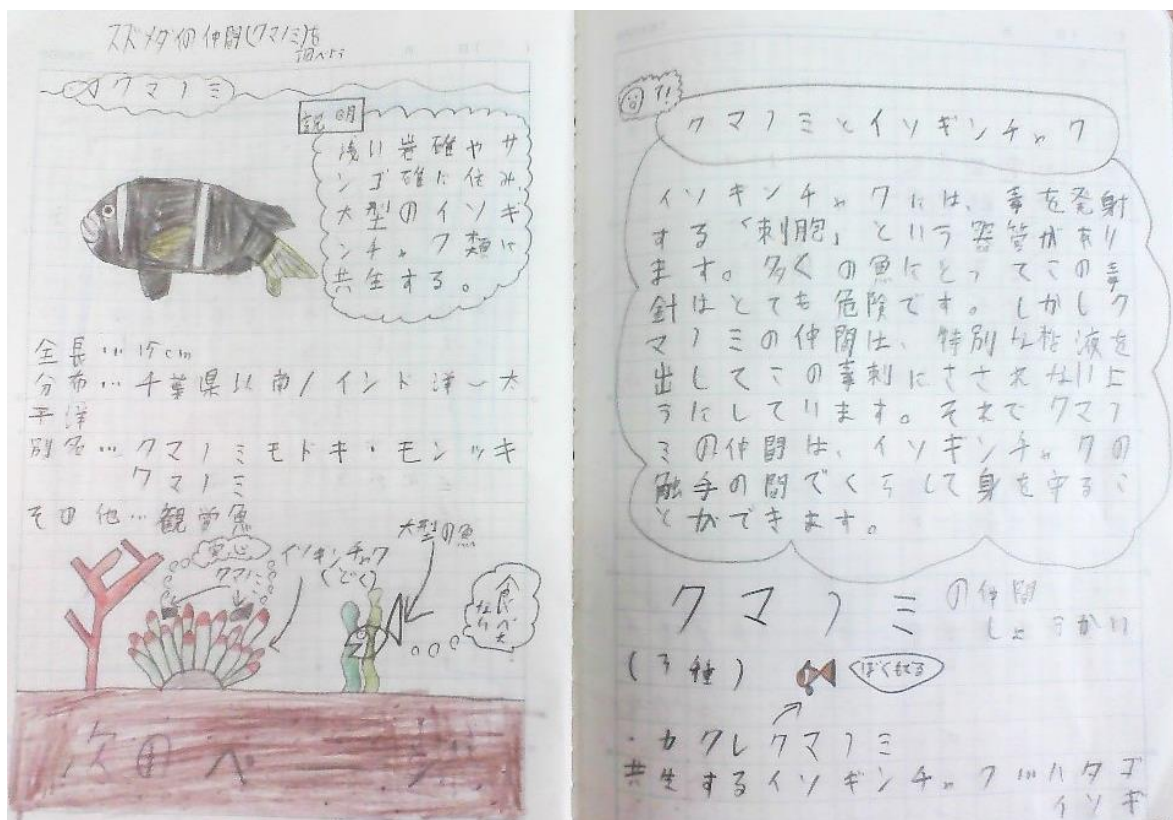 スズメダイの仲間(クマノミ)を
調べよう
クマノミ
説明
浅い岩礁やサ
ンゴ礁に住み、
大型のイソギ
ンチャク類に
共生する。
全長…15cm
分布…千葉県以南/インド洋〜太
平洋
別名…クマノミモドキ・モンツキ
クマノミ
その他…観賞魚
安心
クマノミ
イソギンチャク
(どく)
大型の魚
食べた
次のペ
!?
クマノミとイソギンチャク
イソギンチャクには、毒を発射
する「刺胞」という器管があり
ます。多くの魚にとってこの毒
針はとても危険です。しかしク
マノミの仲間は、特別な粘液を
出してこの毒刺にさされないよ
うにしています。それでクマノ
ミの仲間は、イソギンチャクの
触手の間でくらして身を守るこ
とができます。
クマノミの仲間
しょうかい
(3種)
・カクレクマノミ
共生するイソギンチャク…ハタゴ
イソギ